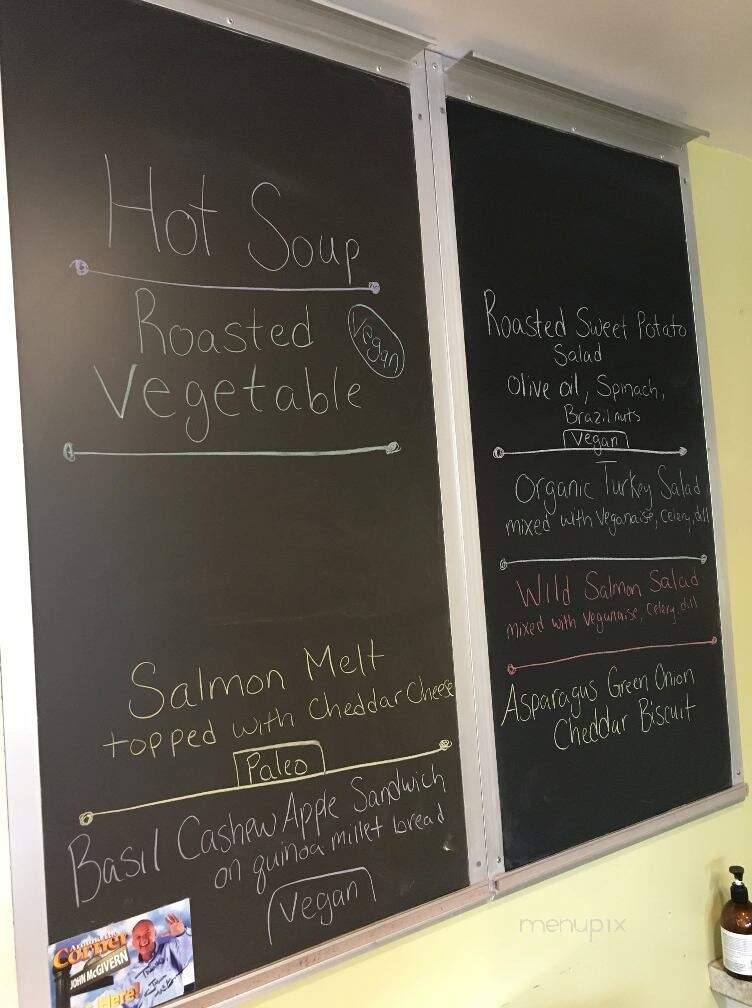 Hot Soup
Roasted
Vegan
Vegetable
Salmon Melt
topped with Cheddar Cheese
Paleo
Basil Cashew Apple Sandwich
on quinoa millet bread
Vegan
Around the
Corner
JOHN McGIVERN
Here!
Roasted Sweet Potato
Salad
Olive oil, Spinach,
Brazil nuts
Vegan
Organic Turkey Salad
mixed with Veganaise, Celery, dill
Wild Salmon Salad
mixed with Veganaise, Celery, dill
Asparagus Green Onion
Cheddar Biscuit
menupix